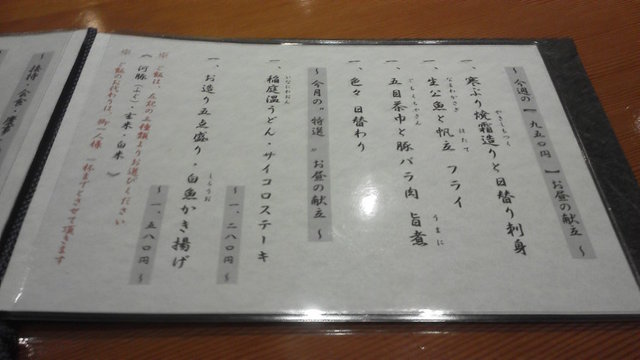 ～ 今週の【 九五〇円 】お昼の献立 ～
一、寒ぶり焼霜造りと日替り刺身
一、生公魚と帆立 フライ
一、五目茶巾と豚バラ肉 旨煮
一、色々 日替わり
～ 今月の〝特選〟お昼の献立 ～
一、稲庭温うどん・サイコロステーキ
～ 一、二八〇円 ～
一、お造り五点盛り・白魚かき揚げ
～ 一、五八〇円 ～
※ ご飯は、左記の三種類よりお選びください
《 河豚（ふぐ）・玄米・白米 》
※ ご飯のお代わりは、御一人様 一杯までとさせて頂きます
～ 接待・会食・慶事